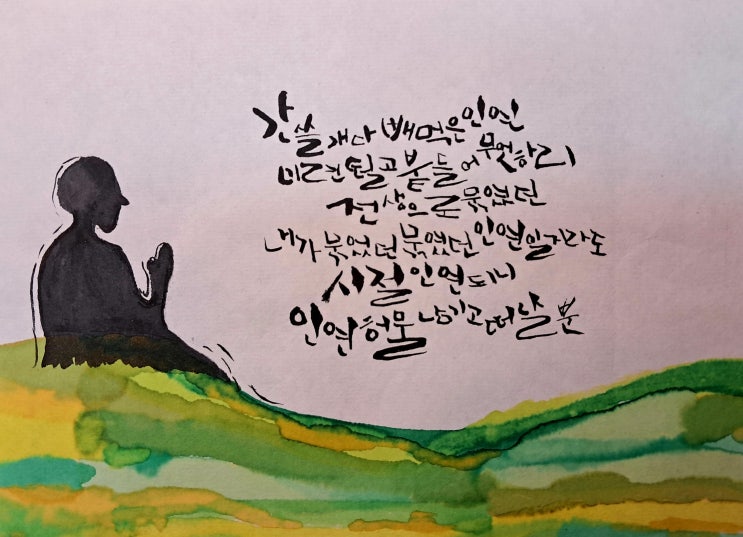 간 쓸개 다 빼먹은 인연
미련 떨고 붙들어 무엇하리
전생으로 묶였던
내가 묶었던 묶였던 인연일지라도
시절인연 되니
인연 허물 남기고 떠날 뿐